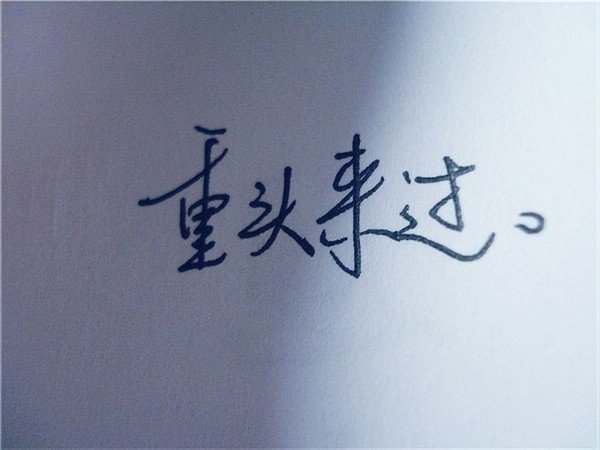 重头来过。